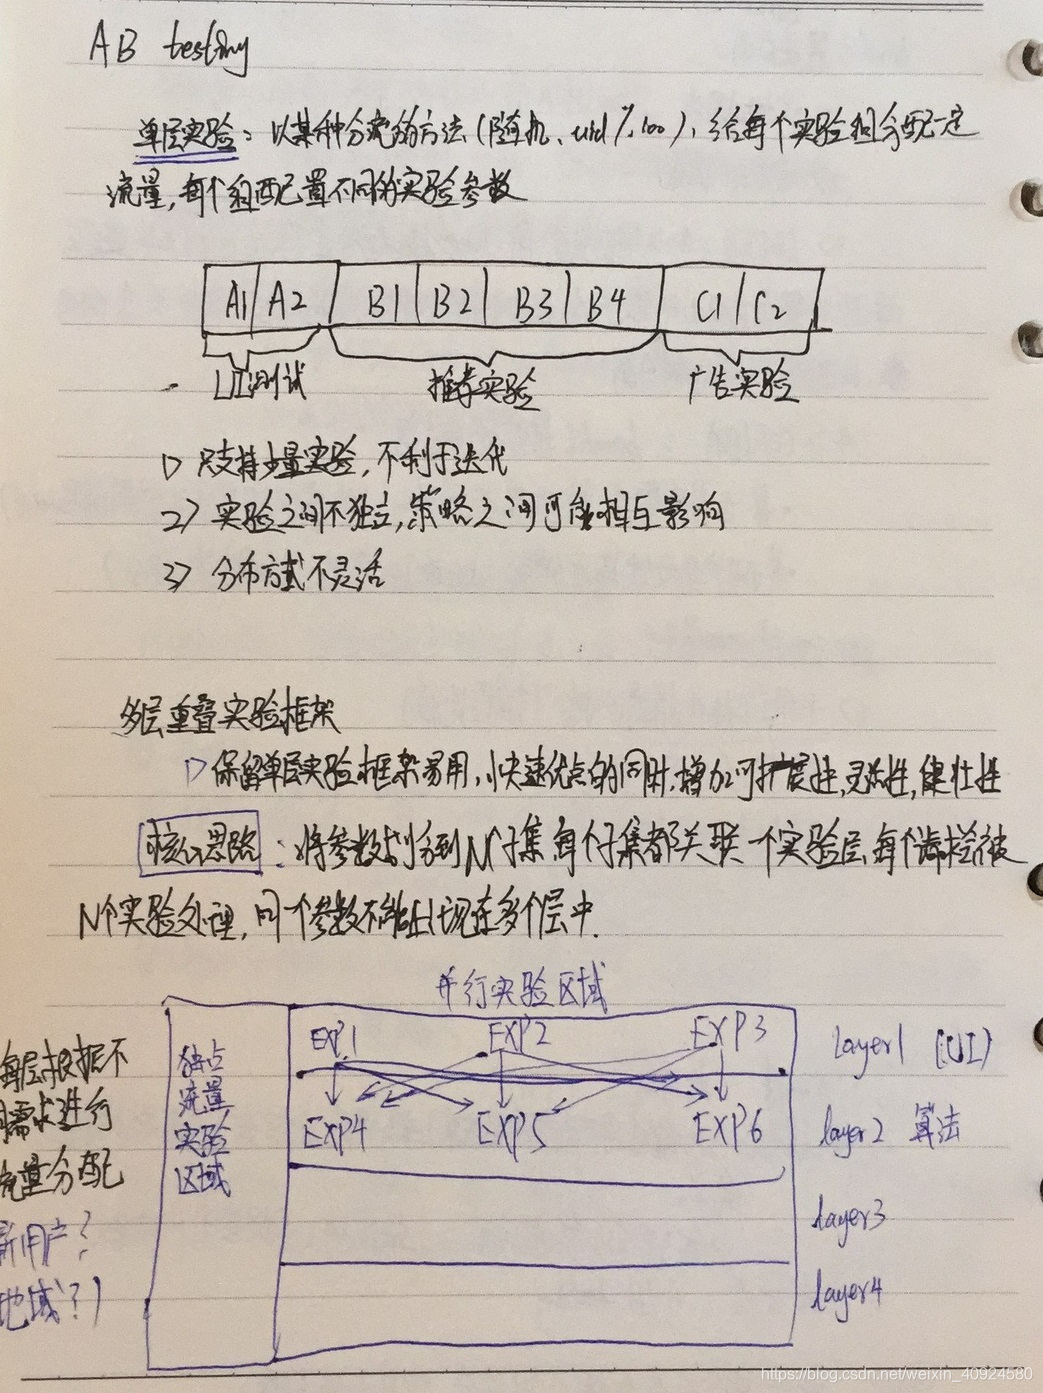 AB testing
单层实验：以某种分流的方法(随机、uid%100)，给每个实验组分配一定
流量，每个组配置不同的实验参数
A1 A2 B1 B2 B3 B4 C1 C2
UI测试 推荐实验 广告实验
1) 只支持少量实验，不利于迭代
2) 实验之间不独立，策略之间可能相互影响
3) 分布方式不灵活
多层重叠实验框架
1) 保留单层实验框架易用，快速优点的同时，增加可扩展性，灵活性，健壮性
核心思路：将参数划分到N个子集，每个子集都关联一个实验层，每个请求被
N个实验处理，同一个参数不能出现在多个层中.
并行实验区域
EXP1 EXP2 EXP3 layer1 (UI)
每层根据不
独占
流量
实验
区域
需求进行
流量分配
新用户？
地域？)
EXP4 EXP5 EXP6 layer2 算法
layer3
layer4
https://blog.csdn.net/weixin_40924580